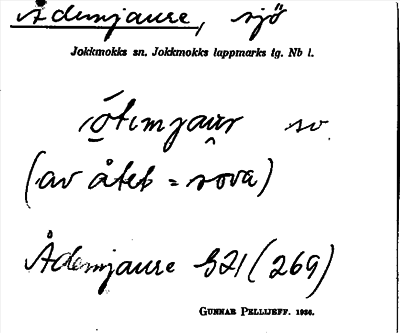 Ådemjaure, sjö
Jokkmokks sn, Jokkmokks lappmarks tg. Nb l.
ó̱tιmjau̯r sv.
(av åtet = sova)
Ådemjaure S21 (269)
GUNNAR PELLIJEFF. 1936.